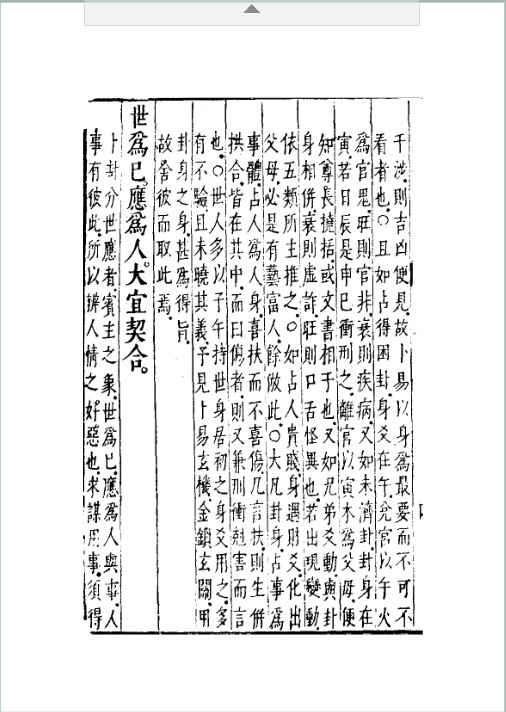 干涉則吉凶便見故卜易以身爲最要而不可不
看者也○且如占得困卦身爻在午兌宮以午火
爲官鬼旺則官非衰則疾病又如未濟卦卦身在
寅若日辰是申巳衝刑之離宮以寅木爲父母便
知尊長撓括或文書相干也又如兄弟爻動與卦
身相併衰則虛詐旺則口舌怪異也若出現變動
依五類所主推之○如占人貴賤身遇財爻化出
父母必是有藝富人餘倣此○大凡卦身占事爲
事體占人爲人身喜扶而不喜傷凡言扶則生併
拱合皆在其中而曰傷者則又兼刑衝尅害而言
也○世人多以子午持世身居初之身爻用之多
有不驗且未曉其義予見卜易玄機金鎖玄關用
卦身之身甚爲得旨
故舍彼而取此焉
世爲巳。應爲人。大宜契合。
卜卦分世應者賓主之象世爲巳應爲人與事人
事有彼此所以辨人情之好惡也求謀用事須得